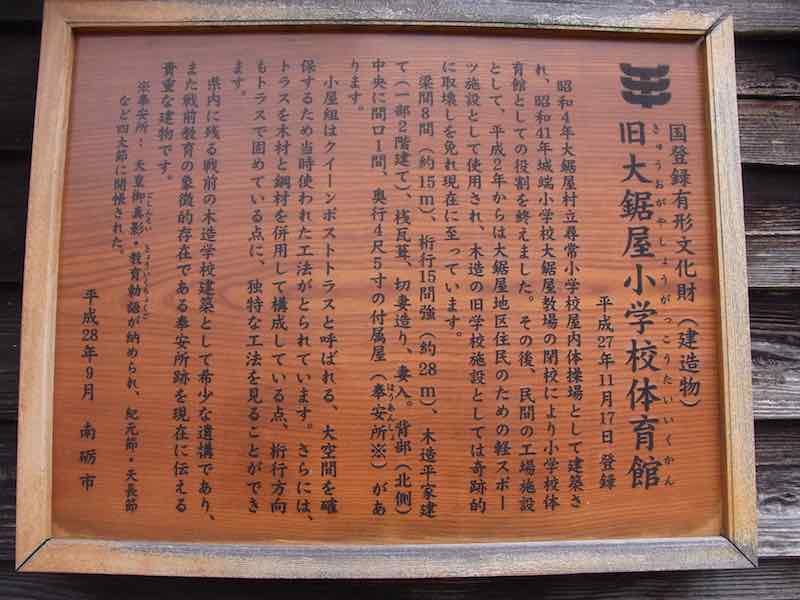 国登録有形文化財（建造物）
きゅうおがやしょうがっこうたいいくかん
旧大鋸屋小学校体育館
平成27年11月17日 登録
昭和４年大鋸屋村立尋常小学校屋内体操場として建築さ
れ、昭和41年城端小学校大鋸屋教場の閉校により小学校体
育館としての役割を終えました。その後、民間の工場施設
として、平成２年からは大鋸屋地区住民のための軽スポー
ツ施設として使用され、木造の旧学校施設としては奇跡的
に取壊しを免れ現在に至っています。
梁間８間（約15ｍ）、桁行15間強（約28ｍ）、木造平家建
て（一部２階建て）、桟瓦葺、切妻造り、妻入。背部（北側）
中央に間口１間、奥行４尺５寸の付属屋（奉安所※）があ
ほうあんしょ
ります。
小屋組はクイーンポストトラスと呼ばれる、大空間を確
保するため当時使われた工法がとられています。さらには、
トラスを木材と鋼材を併用して構成している点、桁行方向
もトラスで固めている点に、独特な工法を見ることができ
ます。
県内に残る戦前の木造学校建築として希少な遺構であり、
また戦前教育の象徴的存在である奉安所跡を現在に伝える
貴重な建物です。
※奉安所： 天皇御真影・教育勅語が納められ、紀元節・天長節
ごしんえい きょういくちょくご
など四大節に開帳された。
平成28年９月 南砺市